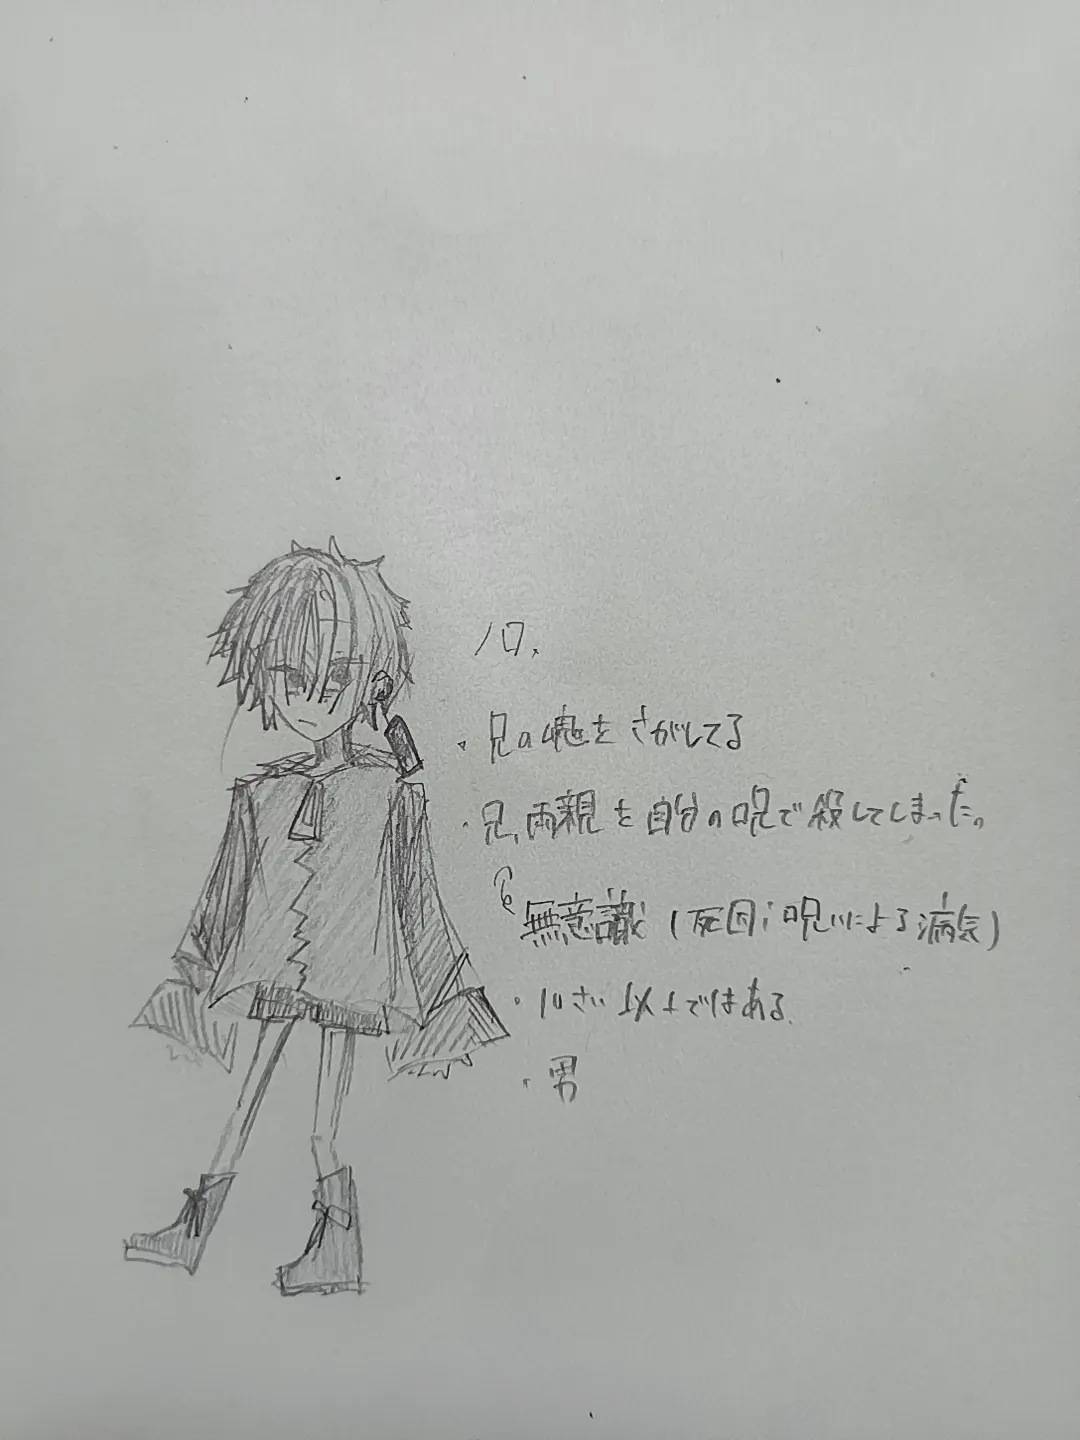 ノロ、
・兄の魂をさがしてる
・兄、両親を自分の呪で殺してしまった。
無意識(死因；呪いによる病気)
・10さい以上ではある.
・男